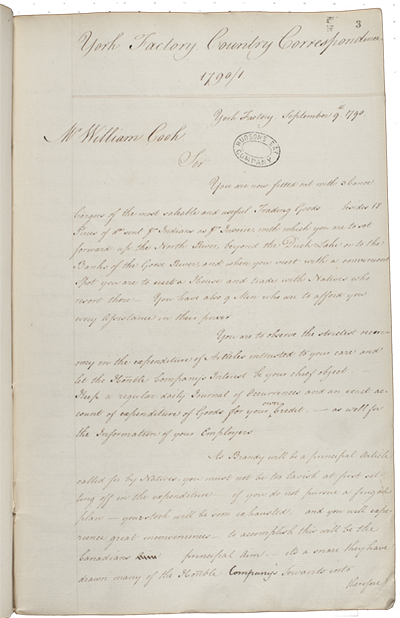 3
York Factory Country Correspondence
1790/1
York Factory September 9th 1790
Mr William Cook
HUDSON'S BAY COMPANY
Sir
You are now fitted out with
of the most saleable and useful Trading Goods 18
sent Indians with which you are to set
forward up the North River, beyond the Duck Lake or to the
Banks of the Goose River, and when you meet with a convenient
Spot you are to erect a House and trade with Natives who
resort there — You have also 9 Men who are to afford you
every Assistance in their power
You are to observe the strictest œcono-
my in the expenditure of Articles intrusted to your care and
let the Honble Company's Interest be your chief object —
Keep a regular daily Journal of Occurrences and an exact ac-
count of expenditure of Goods for your own Credit, — as well for
the Information of your Employers
As Brandy will be a principal Article
called for by Natives, you must not be too lavish at first set-
ting off in the expenditure — if you do not pursue a frugal
plan — your stock will be soon exhausted, and you will expe-
rience great inconvenience — to accomplish this will be the
Canadians principal Aim — its a snare they have
drawn many of the Honble Company's Servants into
therefore